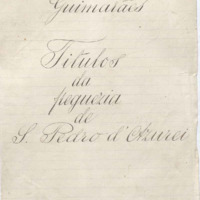 Guimarães
Titulos
da
freguezia
de
S. Pedro d'Azurei